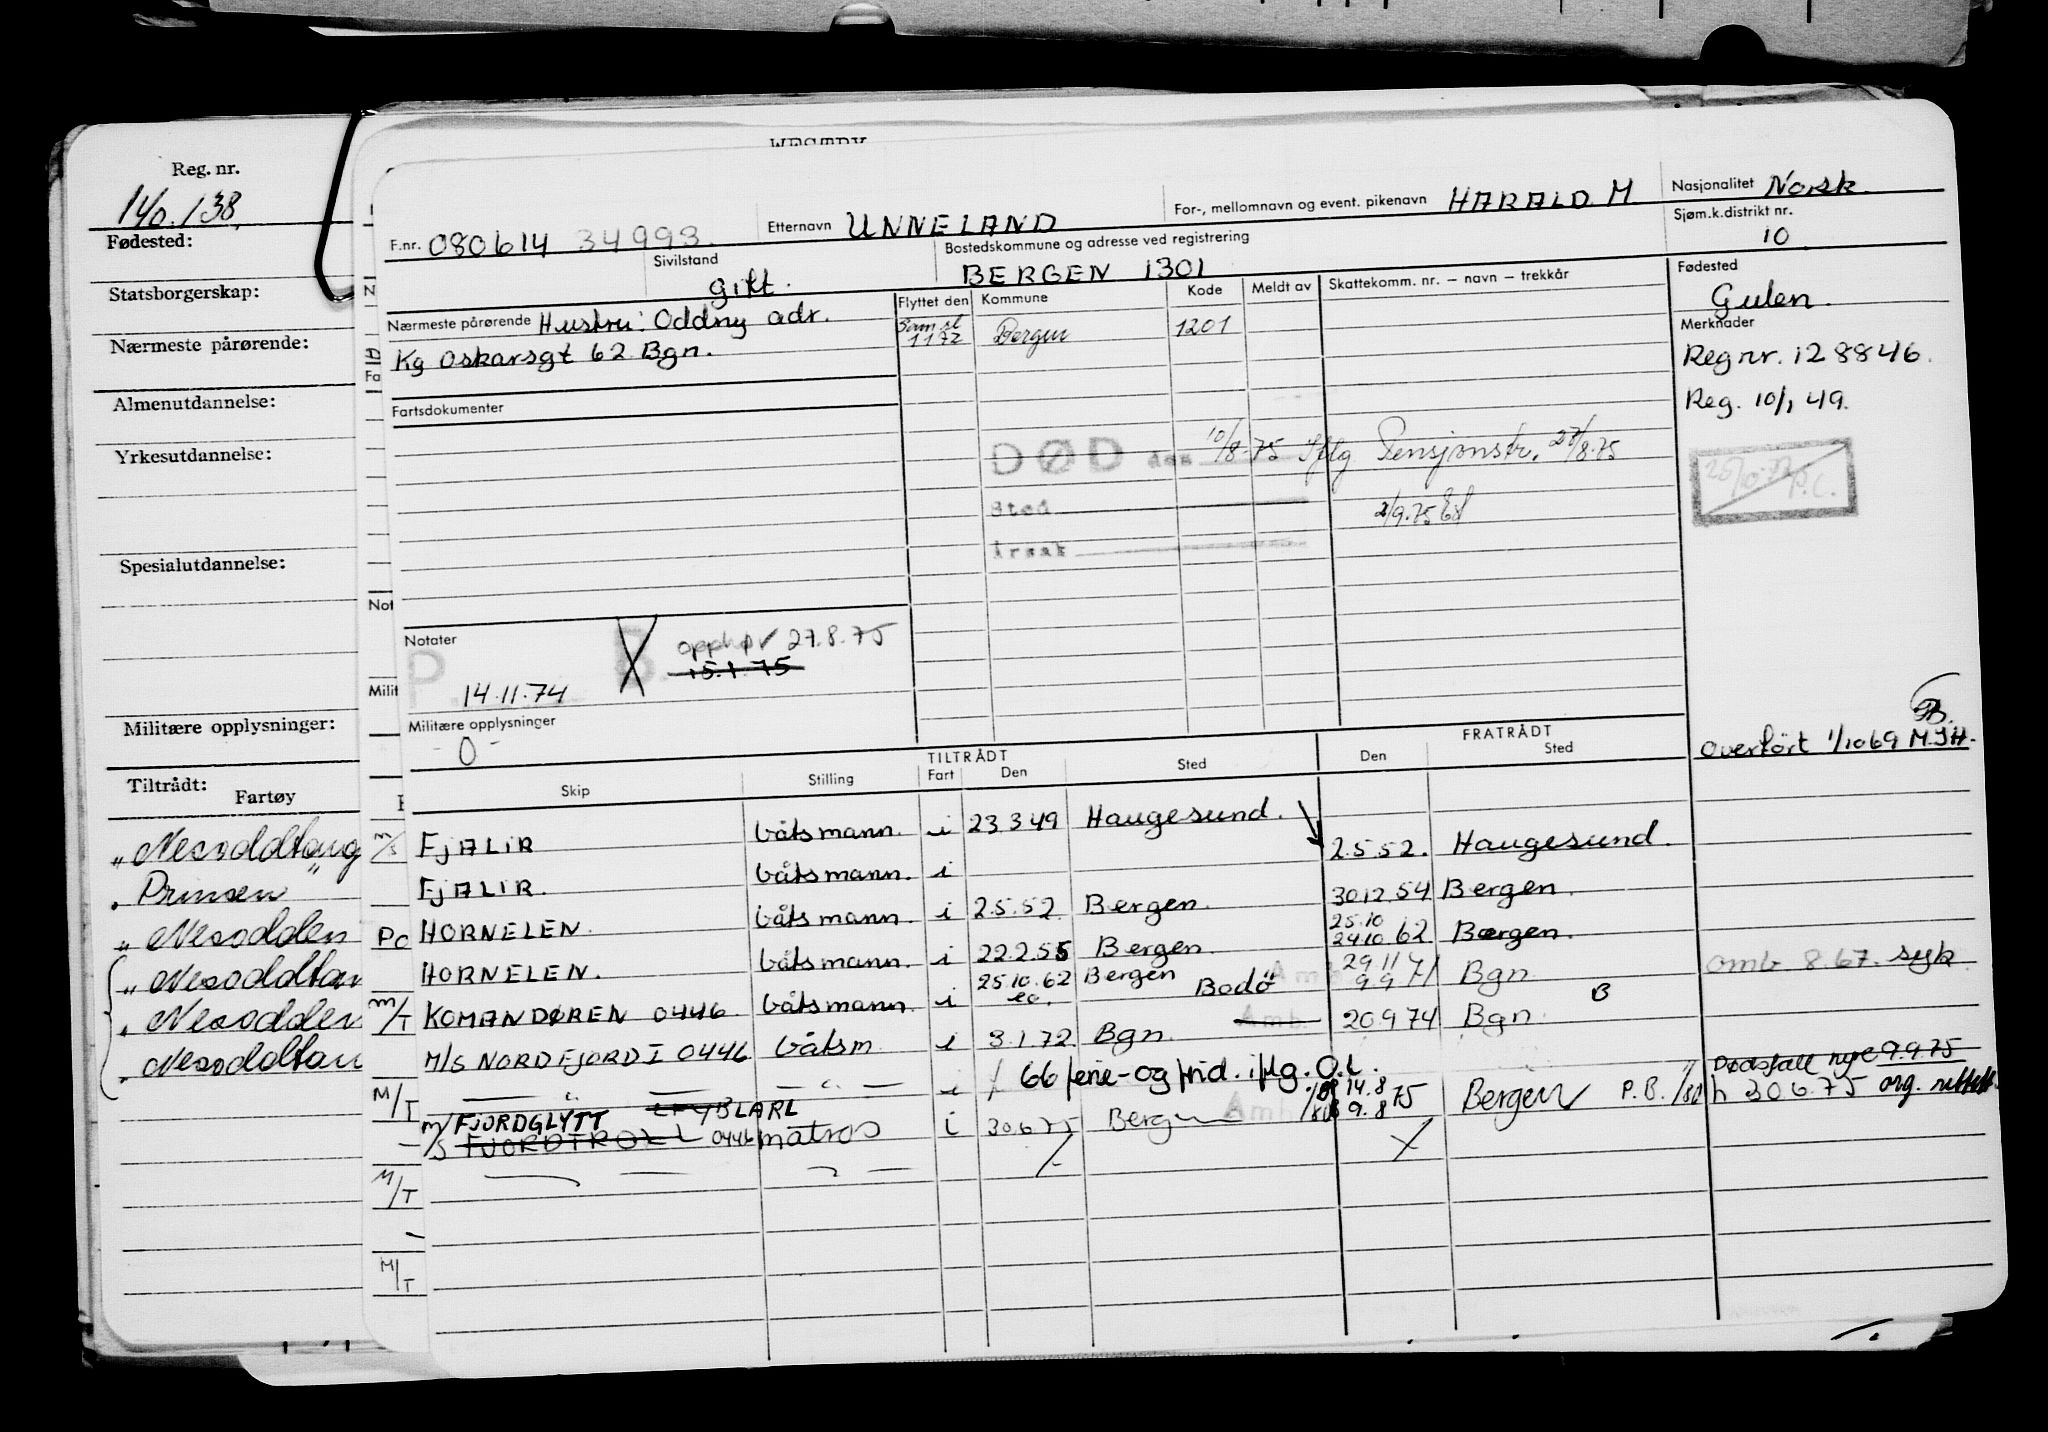 WESTBY
Reg. nr.
140.138.
Fødested:
Statsborgerskap:
Nærmeste pårørende:
Almenutdannelse:
Yrkesutdannelse:
Spesialutdannelse:
Militære opplysninger:
Tiltrådt:
Fartøy
"Nesoddtang"
" Prinsen
" Nesodden
" Nesoddtan
" Nesodden
" Nesoddtan
F.nr. 080614 34993.
Etternavn UNNELAND
For-, mellomnavn og event. pikenavn HARALD M
Nasjonalitet Norsk.
Sjøm.k.distrikt nr.
10
Sivilstand
gift.
Bostedskommune og adresse ved registrering
BERGEN 1301
Fødested
Gulen.
Nærmeste pårørende Hustru: Oddny adr.
Kg Oskarsgt 62 Bgn.
Flyttet den Kommune Kode Meldt av Skattekomm. nr. – navn – trekkår
Sam.sl
1172 Bergen 1201
Merknader
Regnr. 128846.
Reg. 10/1 49.
Fartsdokumenter
DØD den 10/8-75 Iflg Pensjonstr. 27/8-75
Sted
2/9.75
Årsak
P.C.
Notater
P. 14.11.74
B. opphør 27.8.75
15.1.75
Militære opplysninger
-0-
Overført 1/10 69 M.J.H.
TILTRÅDT FRATRÅDT
Skip Stilling Fart Den Sted Den Sted
M/S FJALIR båtsmann. i 23 3 49 Haugesund.
FJALIR. båtsmann. i 2.5.52. Haugesund.
HORNELEN. båtsmann. i 2.5.52. Bergen. 30 12 54 Bergen.
HORNELEN. båtsmann. i 22.2.55 Bergen 25.10 24.10 62 Bergen.
M/T KOMANDØREN 0446. båtsmann i 25.10.62 Bergen Bodø Amb 29.11 9.9 71 Bgn. omb 8.67. syk.
M/S NORDFJORD I 0446 båtsm. i 3.1.72 Bgn. Amb. 20.9 74 Bgn. B
— " — — " — i / 66 ferie-og frid. iflg. O.L.
M/S FJORDGLYTT LARL
FJORDTROLL 0446 matros i 30.6 75 Bergen Amb 14.8 9.8 75 Bergen P.B.
Dødsfall nye 9.9.75
h 30 6.75 org. rettet
M/T
M/T
M/T